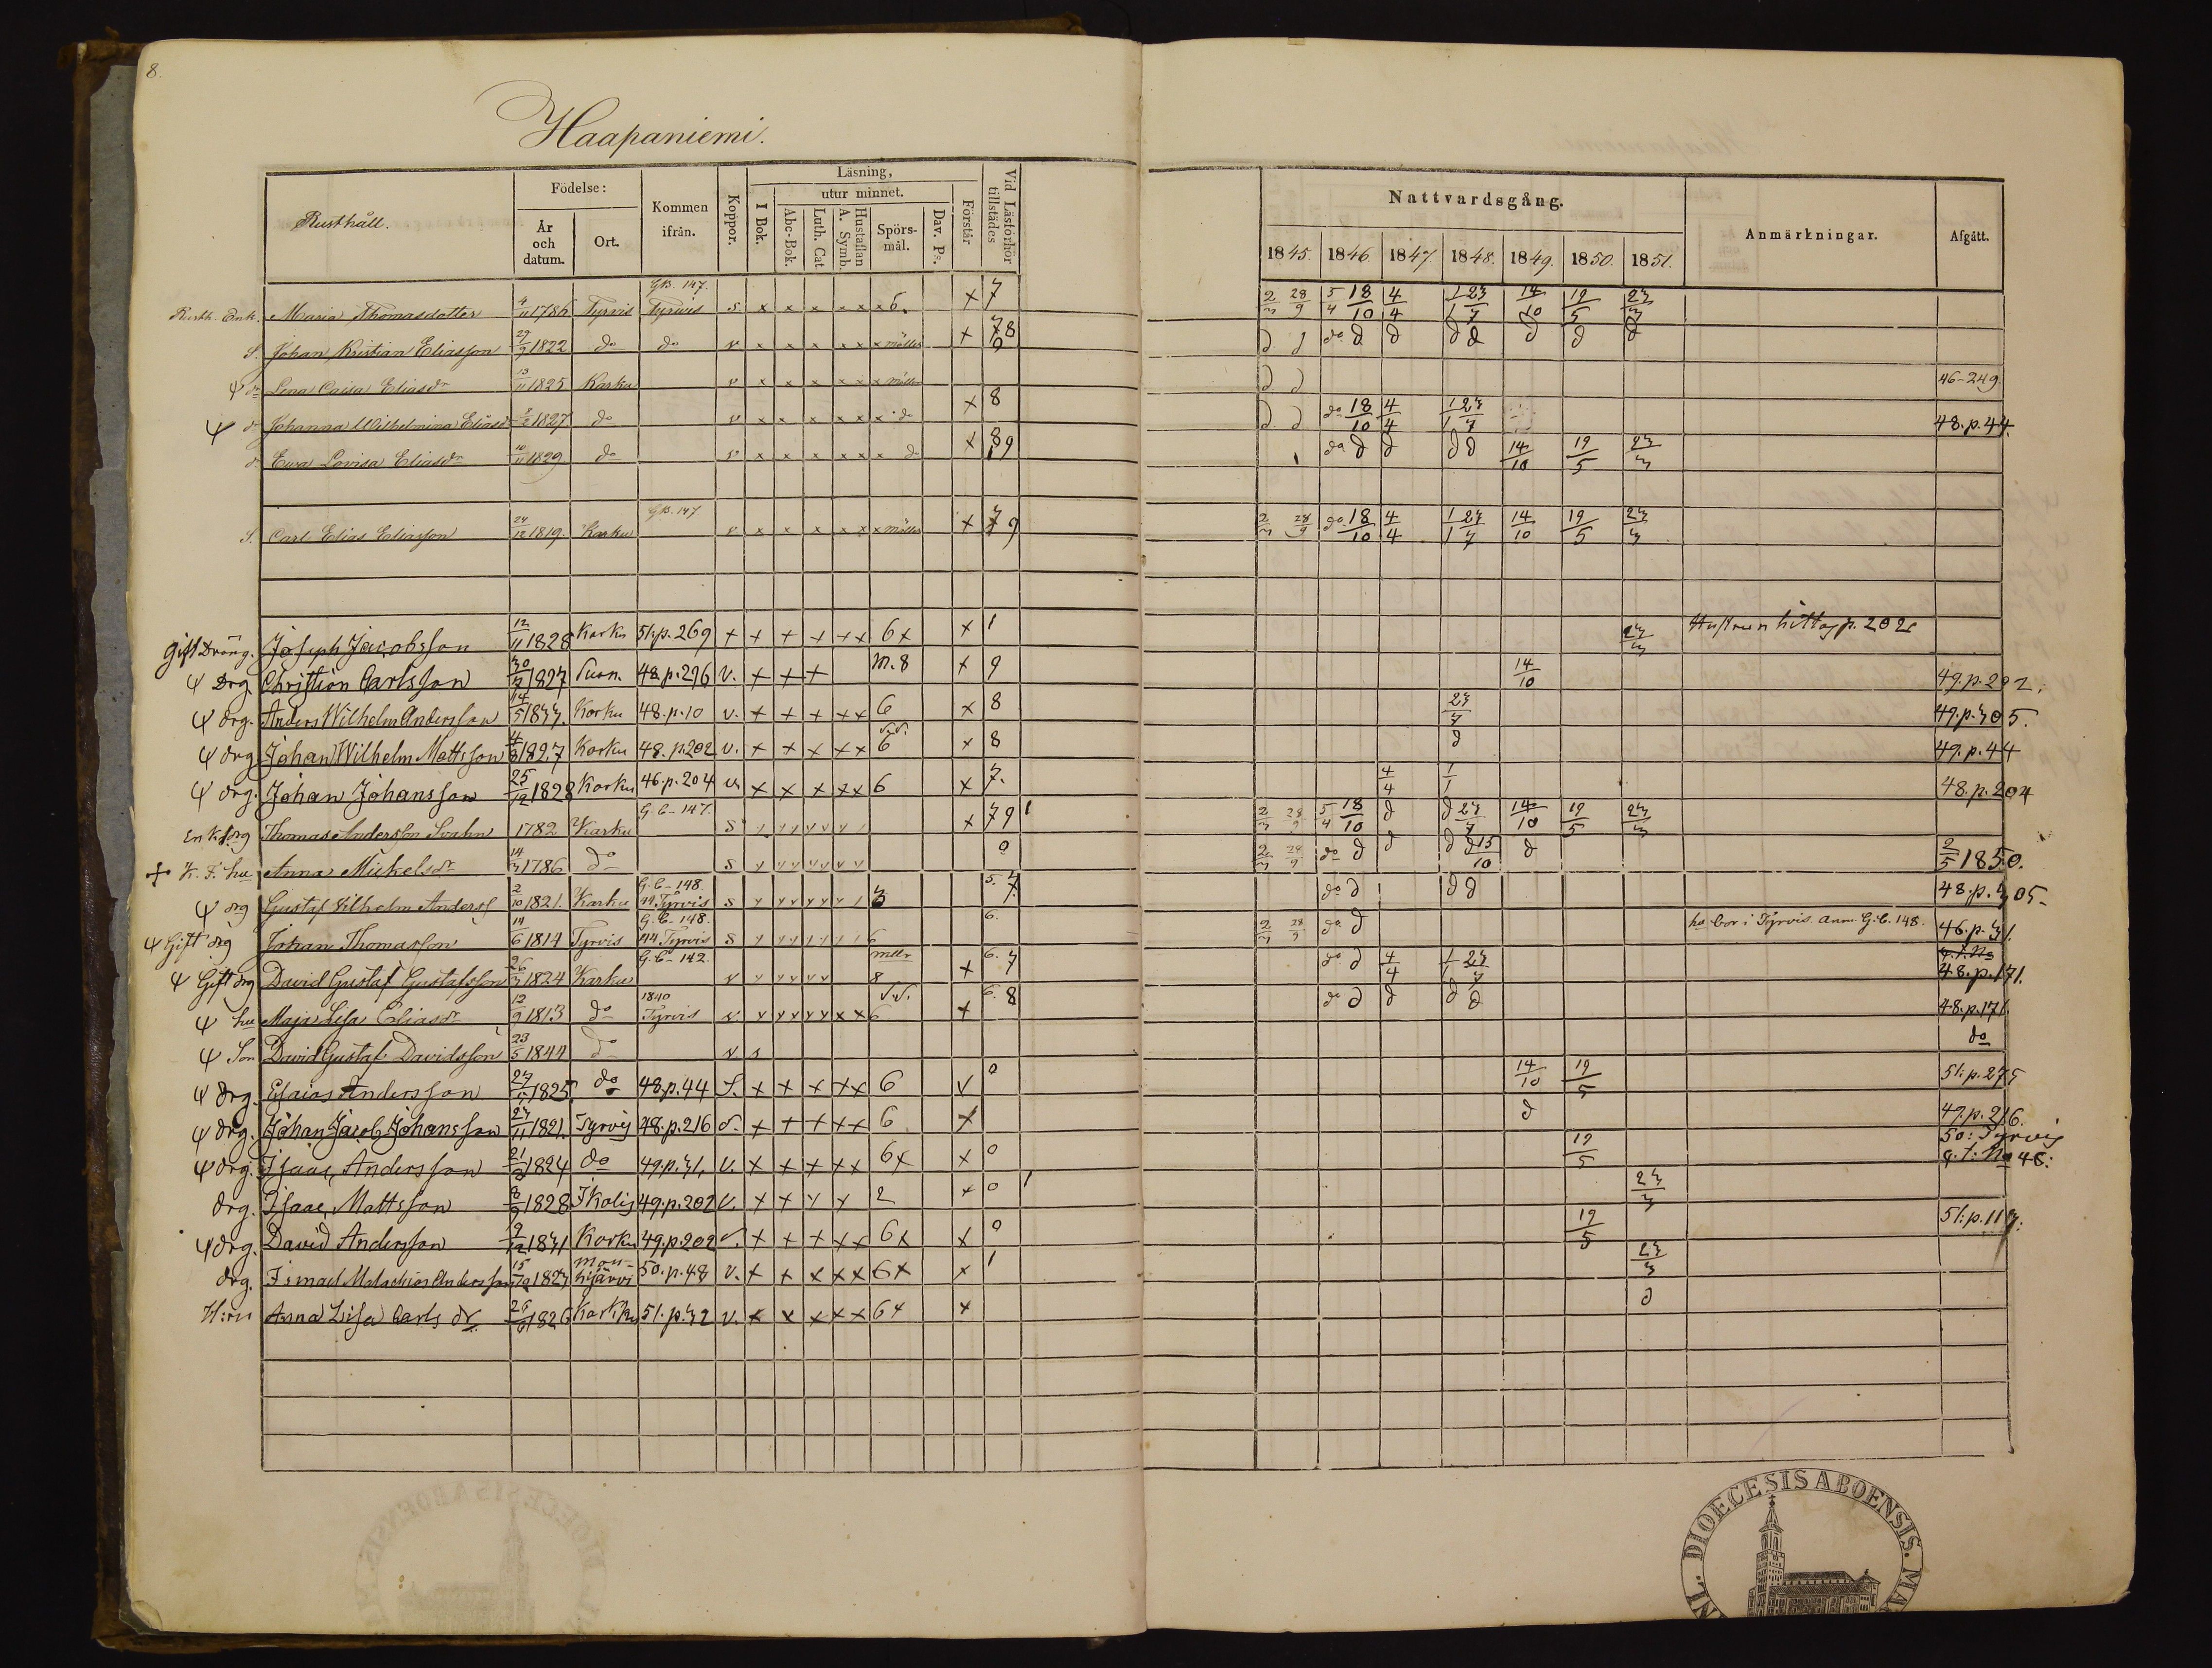 8.
Haapaniemi.
Rusthåll. Födelse: År och datum. Ort. Kommen ifrån. Koppor. Läsning, I Bok. utur minnet. Abc-Bok. Luth. Cat Hustaflan A. Symb. Spörsmål. Dav. Ps. Förstår Vid Läsförhör tillstädes
Nattvardsgång. 1845. 1846. 1847. 1848. 1849. 1850. 1851. Anmärkningar. Afgått.
G.B. 147.
Rusth. Enk. Maria Thomasdotter 4/11 1786 Tyrvis Tyrvis s x x x x x x 6. x 7 2/3 28/9 5/4 18/10 4/4 1/1 23/7 14/10 19/5 23/3
S. Johan Kristian Eliasson 29/9 1822 do do v x x x x x x möller x 78 d d do d d d d d d d
Ψ dr Lena Caisa Eliasdr 13/11 1825 Karku v x x x x x x möller d d 46-249.
Ψ dr Johanna Wilhelmina Eliasdr 1827 do v x x x x x x do x 8 d d do 18/10 4/4 1/1 23/7 48.p.44.
dr Eva Lovisa Eliasdr 10/11 1829 do v x x x x x x do x 89 do d d d d 14/10 19/5 23/3
G.B. 147
S. Carl Elias Eliasson 24/12 1819. Karku v x x x x x x möller x 9 2/3 28/9 do 18/10 4/4 1/1 23/7 14/10 19/5 23/3
Gift Dräng. Joseph Jacobsson 12/11 1828 Karku 51:p.269 + + + + + + 6x x 1 23/3 Hustrun hittas p. 202
Ψ Drg Christian Carlsson 1827 Suon. 48.p.296 v. + + + m.8 x 9 14/10 49.p.202.
Ψ drg. Anders Wilhelm Andersson 14/5 1833. Karku 48.p.10 v. + + + + + 6 x 8 23/7 49.p.305.
Ψ drg Johan Wilhelm Mattsson 4/8 1827 Karku 48.p.202 v. + + + + + 6 x 8 d 49.p.44
Ψ drg. Johan Johansson 25/12 1828 Karku 46.p.204 v + + + + + 6 x 7. 4/4 1/1 48.p.204
G.C-147.
Enk. drg Thomas Andersson Svahn 1782 Karku s x 79 1 2/3 28/9 5/4 18/10 d d 23/7 14/10 19/5 23/3
hu Anna Mickelsdr 14/3 1786 do s 0 2/3 28/9 do d d d d 15/10 d 2/5 1850.
G.C-148.
Ψ drg Gustaf Vilhelm Anders 2/10 1821. Karku 44 Tyrvis s 3 5. 7 do d d d 48.p.305-
G.C-148.
Ψ Gift drg Johan Thomasson 14/6 1814 Tyrvis 44 Tyrvis s 6 6. 2/3 28/9 do d ho bor i Tyrvis. Anm. G.C. 148. 46.p.31.
G.C-142.
Ψ Gift drg David Gustaf Gustafsson 26/3 1824 Karku v 8 x 6. 7 do d 4/4 1/1 23/7 48.p.171.
1840
Ψ hu Maja Lisa Eliasdr 12/9 1813 do Tyrvis v 6 x 6. 8 do d d d d 48.p.171.
Ψ Son David Gustaf Davidsson 23/5 1844 do v s do
Ψ drg. Esaias Andersson 1825 do 48.p.44 S. + + + + + 6 v 0 14/10 19/5 51:p.275
Ψ drg. Johan Jacob Johansson 23/11 1821. Tyrvis 48.p.216 s. + + + + + 6 x d 49.p.216.
Ψ drg. Isaac Andersson 1824 do 49.p.31. v. + + + + + 6x x 0 19/5 50: Tyrvis No 46:
drg. Isaac Mattsson 8/9 1828 Ikalis 49.p.202 v. + + + + 2 x 0 1 23/3
Ψ drg. David Andersson 9/12 1831 Karku 49.p.202 s. + + + + + 6x x 0 19/5 51:p.117:
drg. Ismael Malachias Andersson 1827 Mouhijärvi 50.p.48 v. + + + + + 6x x 1 23/3
H:ru Anna Lisa Carls dr. 26/6 1826 Karkku 51.p.32 v. + + + + + 6x x d
DIOECESIS ABOENSIS.